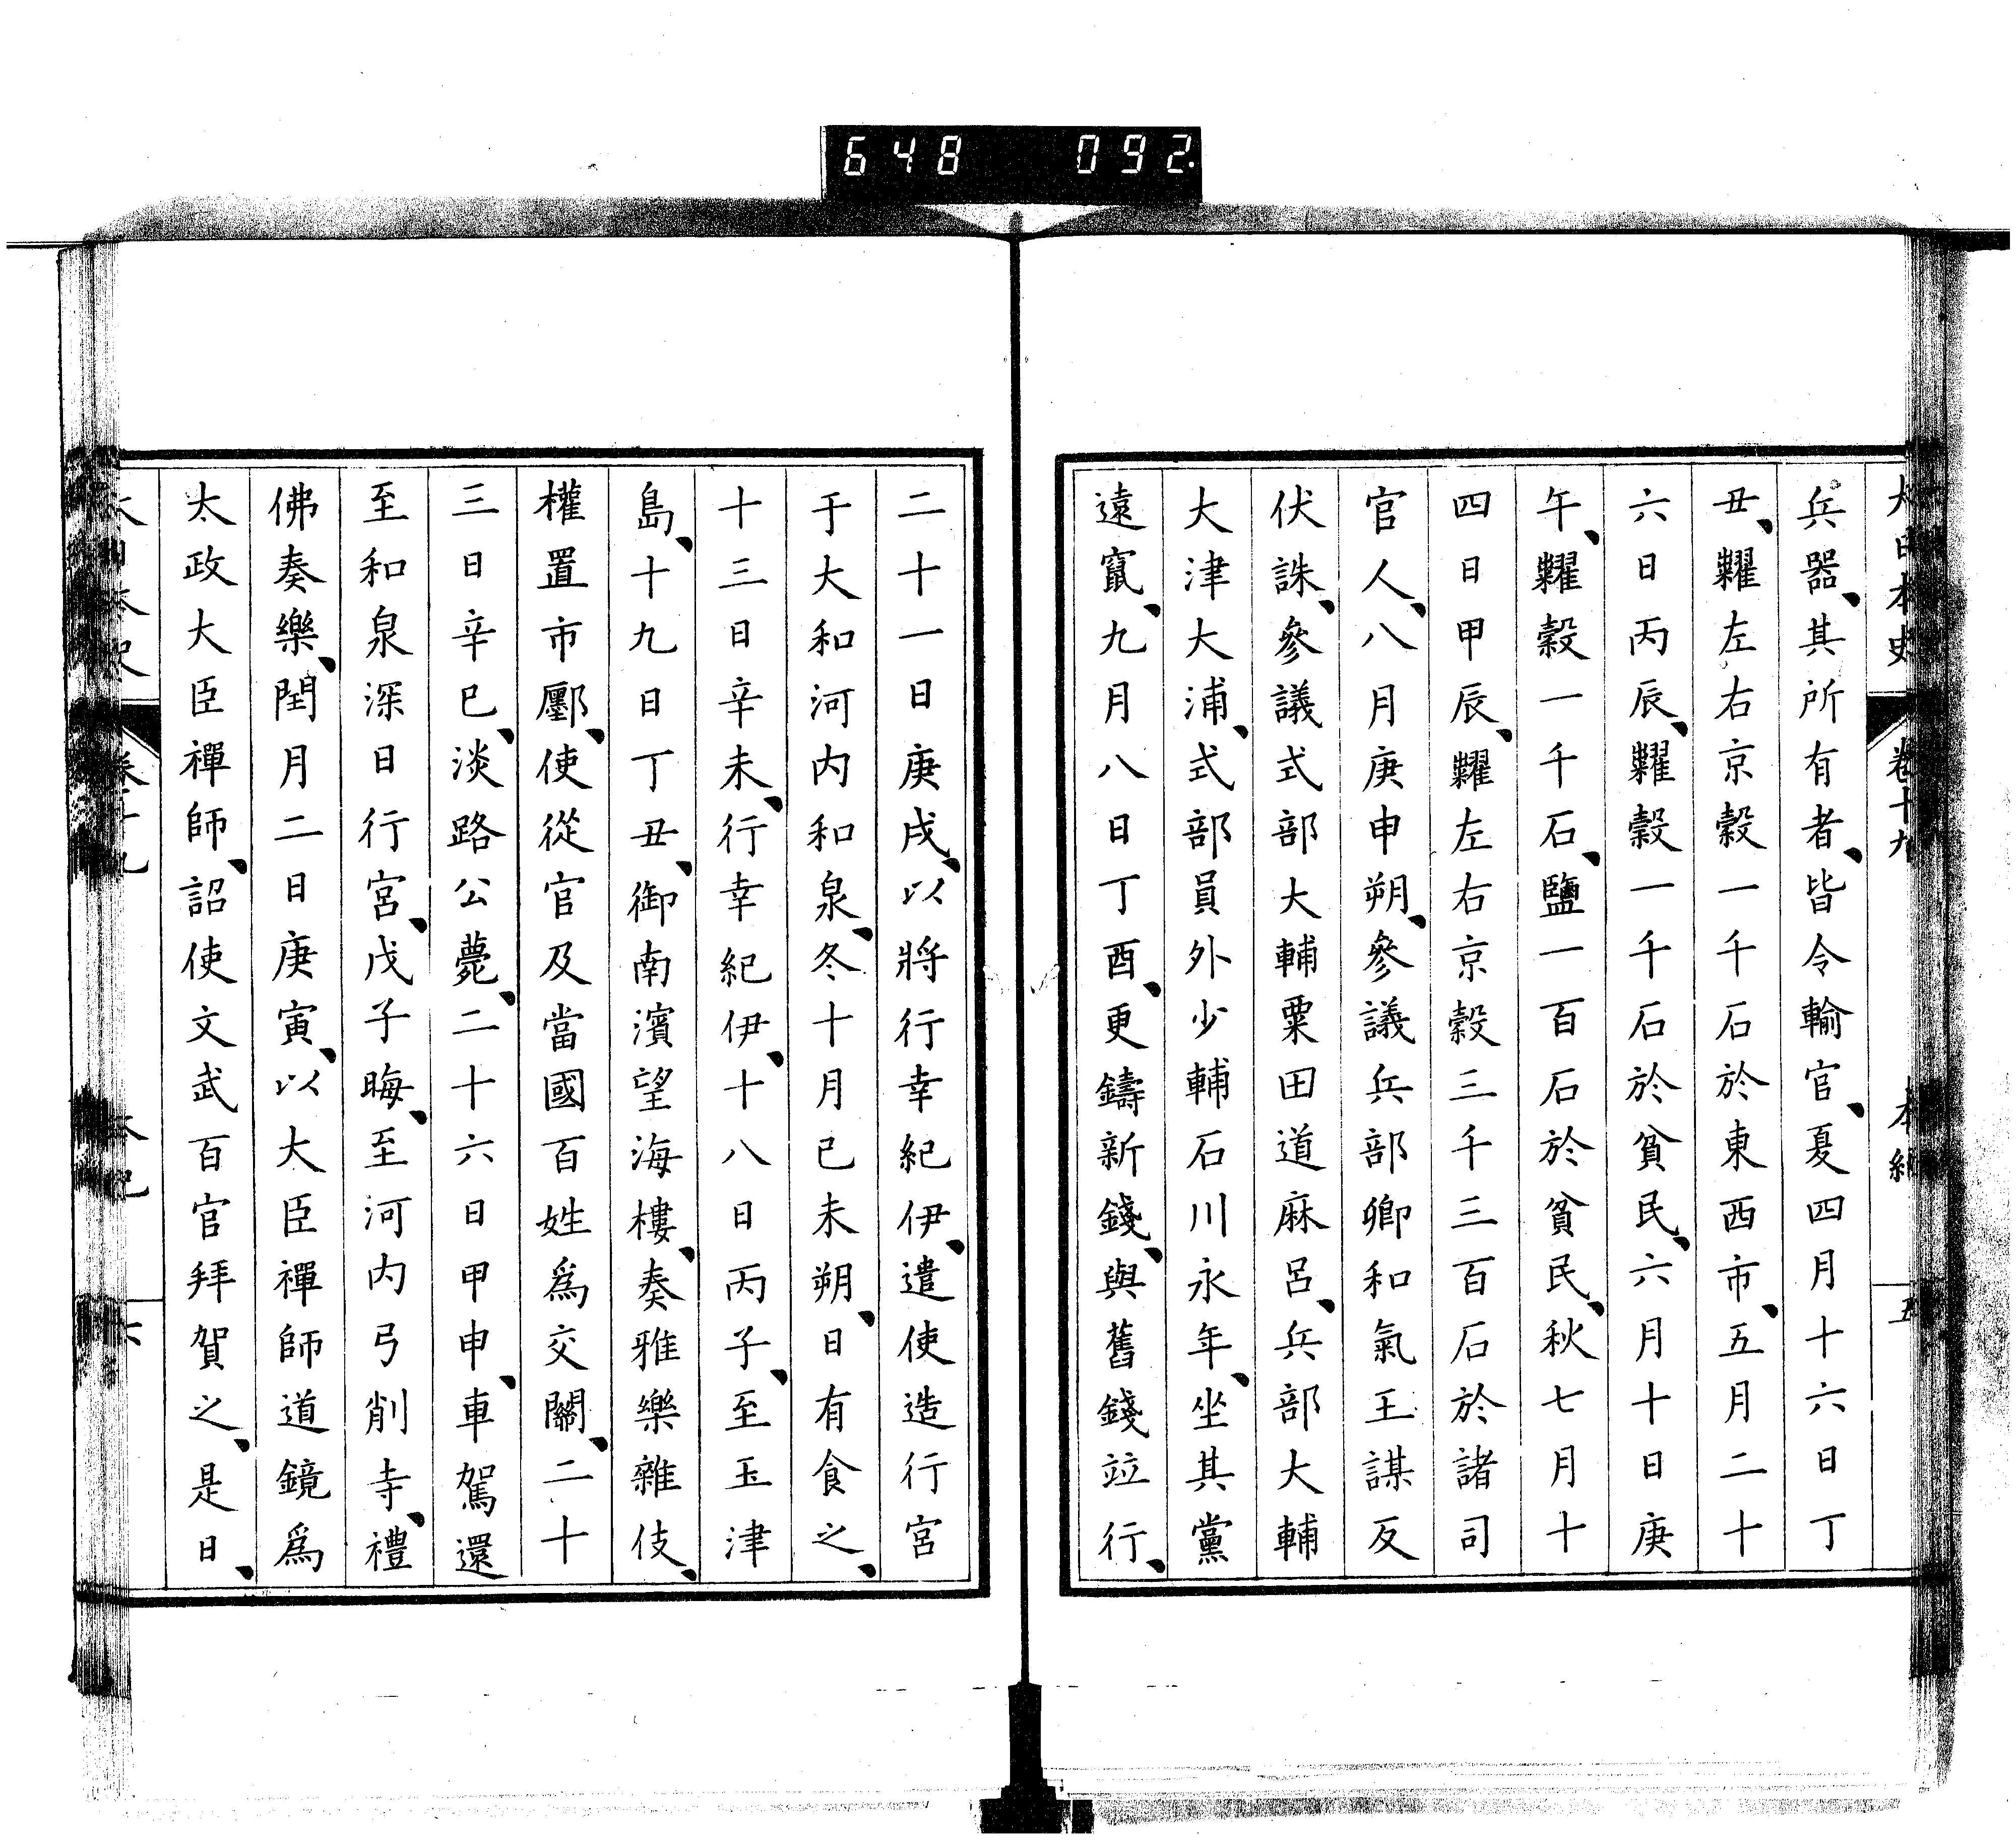 648 092
大日本史 卷十九 本紀 五
兵器、其所有者、皆令輸官、夏四月十六日丁
丑、糶左右京穀一千石於東西市、五月二十
六日丙辰、糶穀一千石於貧民、六月十日庚
午、糶穀一千石、鹽一百石於貧民、秋七月十
四日甲辰、糶左右京穀三千三百石於諸司
官人、八月庚申朔、參議兵部卿和氣王謀反
伏誅、參議式部大輔粟田道麻呂、兵部大輔
大津大浦、式部員外少輔石川永年、坐其黨
遠竄、九月八日丁酉、更鑄新錢、與舊錢竝行、
二十一日庚戌、以將行幸紀伊、遣使造行宮
于大和河内和泉、冬十月己未朔、日有食之、
十三日辛未、行幸紀伊、十八日丙子、至玉津
島、十九日丁丑、御南濱望海樓、奏雅樂雜伎、
權置市廛、使從官及當國百姓爲交關、二十
三日辛巳、淡路公薨、二十六日甲申、車駕還
至和泉深日行宮、戊子晦、至河内弓削寺、禮
佛奏樂、閏月二日庚寅、以大臣禪師道鏡爲
太政大臣禪師、詔使文武百官拜賀之、是日、